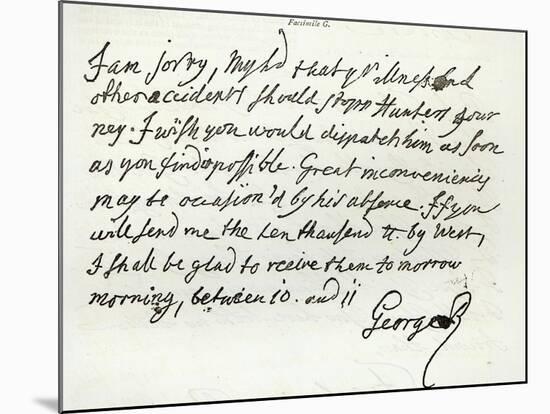 Facsimile G.
I am sorry, Mylᵈ that yʳ illness and
other accidents should stopp Hunters Jour
ney. I wish you would dispatch him as soon
as you find it possible. Great inconveniency
may be occasion'd by his absence. If you
will send me the ten thausend tt. by West,
I shall be glad to receive them to morrow
morning, between 10. and 11
George R